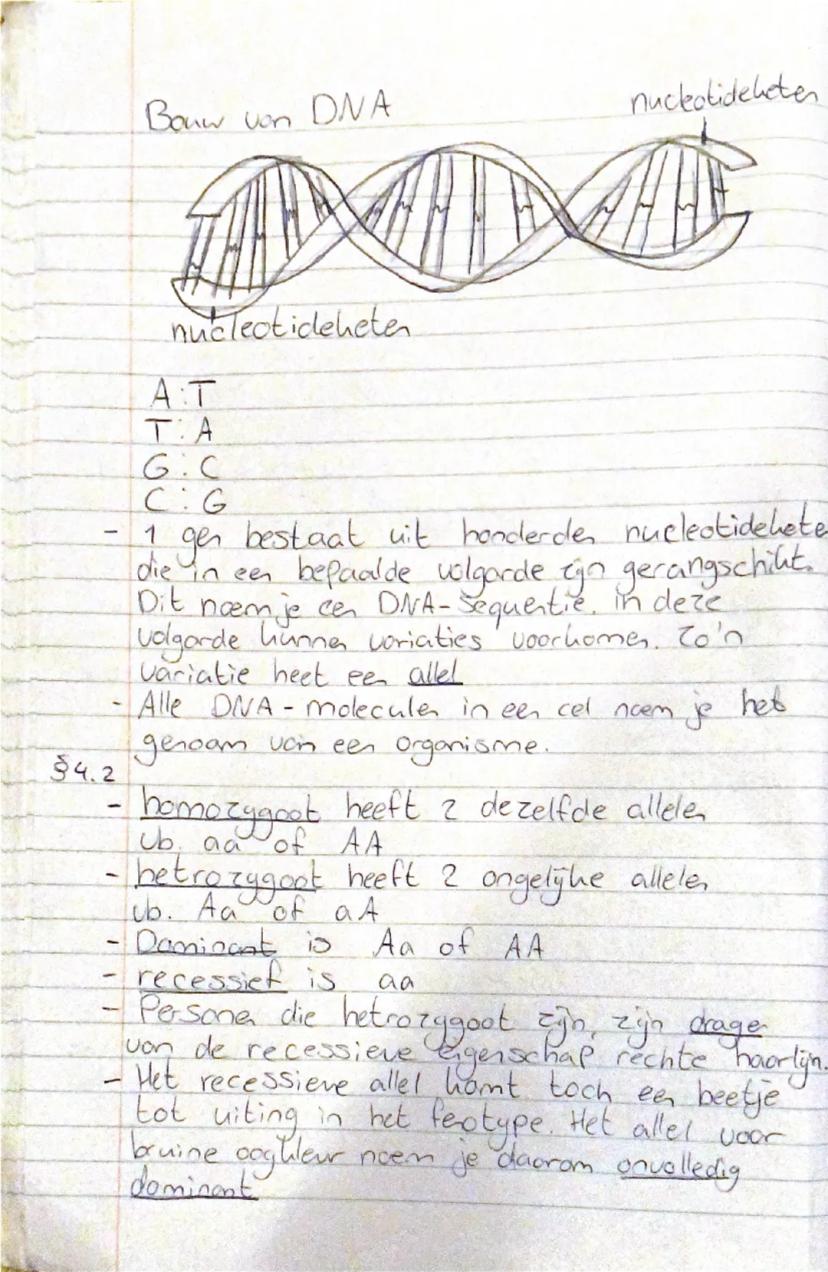 Bouw van DNA
nucleotideketen
nucleotideketen
A:T
T:A
G:C
C:G
- 1 gen bestaat uit honderden nucleotidekete
die in een bepaalde volgorde zijn gerangschikt.
Dit noem je een DNA-sequentie. in deze
volgorde kunnen variaties voorkomen. Zo'n
variatie heet een allel
- Alle DNA-moleculen in een cel noem je het
genoom van een organisme.
§4.2
- homozygoot heeft 2 dezelfde allelen
vb. aa of AA
- hetrozygoot heeft 2 ongelijke allelen
vb. Aa of aA
- Dominant is Aa of AA
- recessief is aa
- Personen die hetrozygoot zijn, zijn drage
van de recessieve eigenschap rechte haarlijn.
- Het recessieve allel komt toch een beetje
tot uiting in het fenotype. Het allel voor
bruine oogkleur noem je daarom onvolledig
dominant